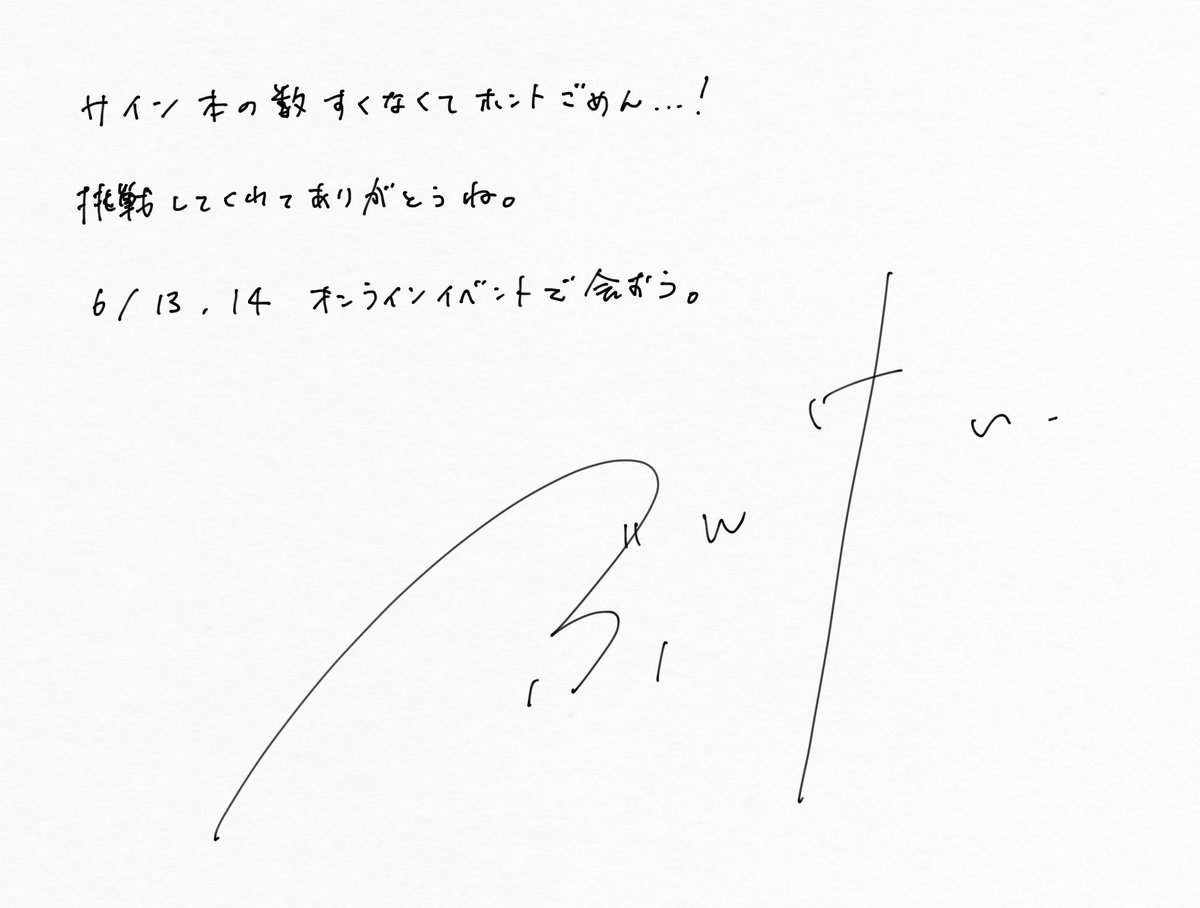 サイン本の数すくなくてホントごめん…!
挑戦してくれてありがとうね。
6/13.14 オンラインイベントで会おう。